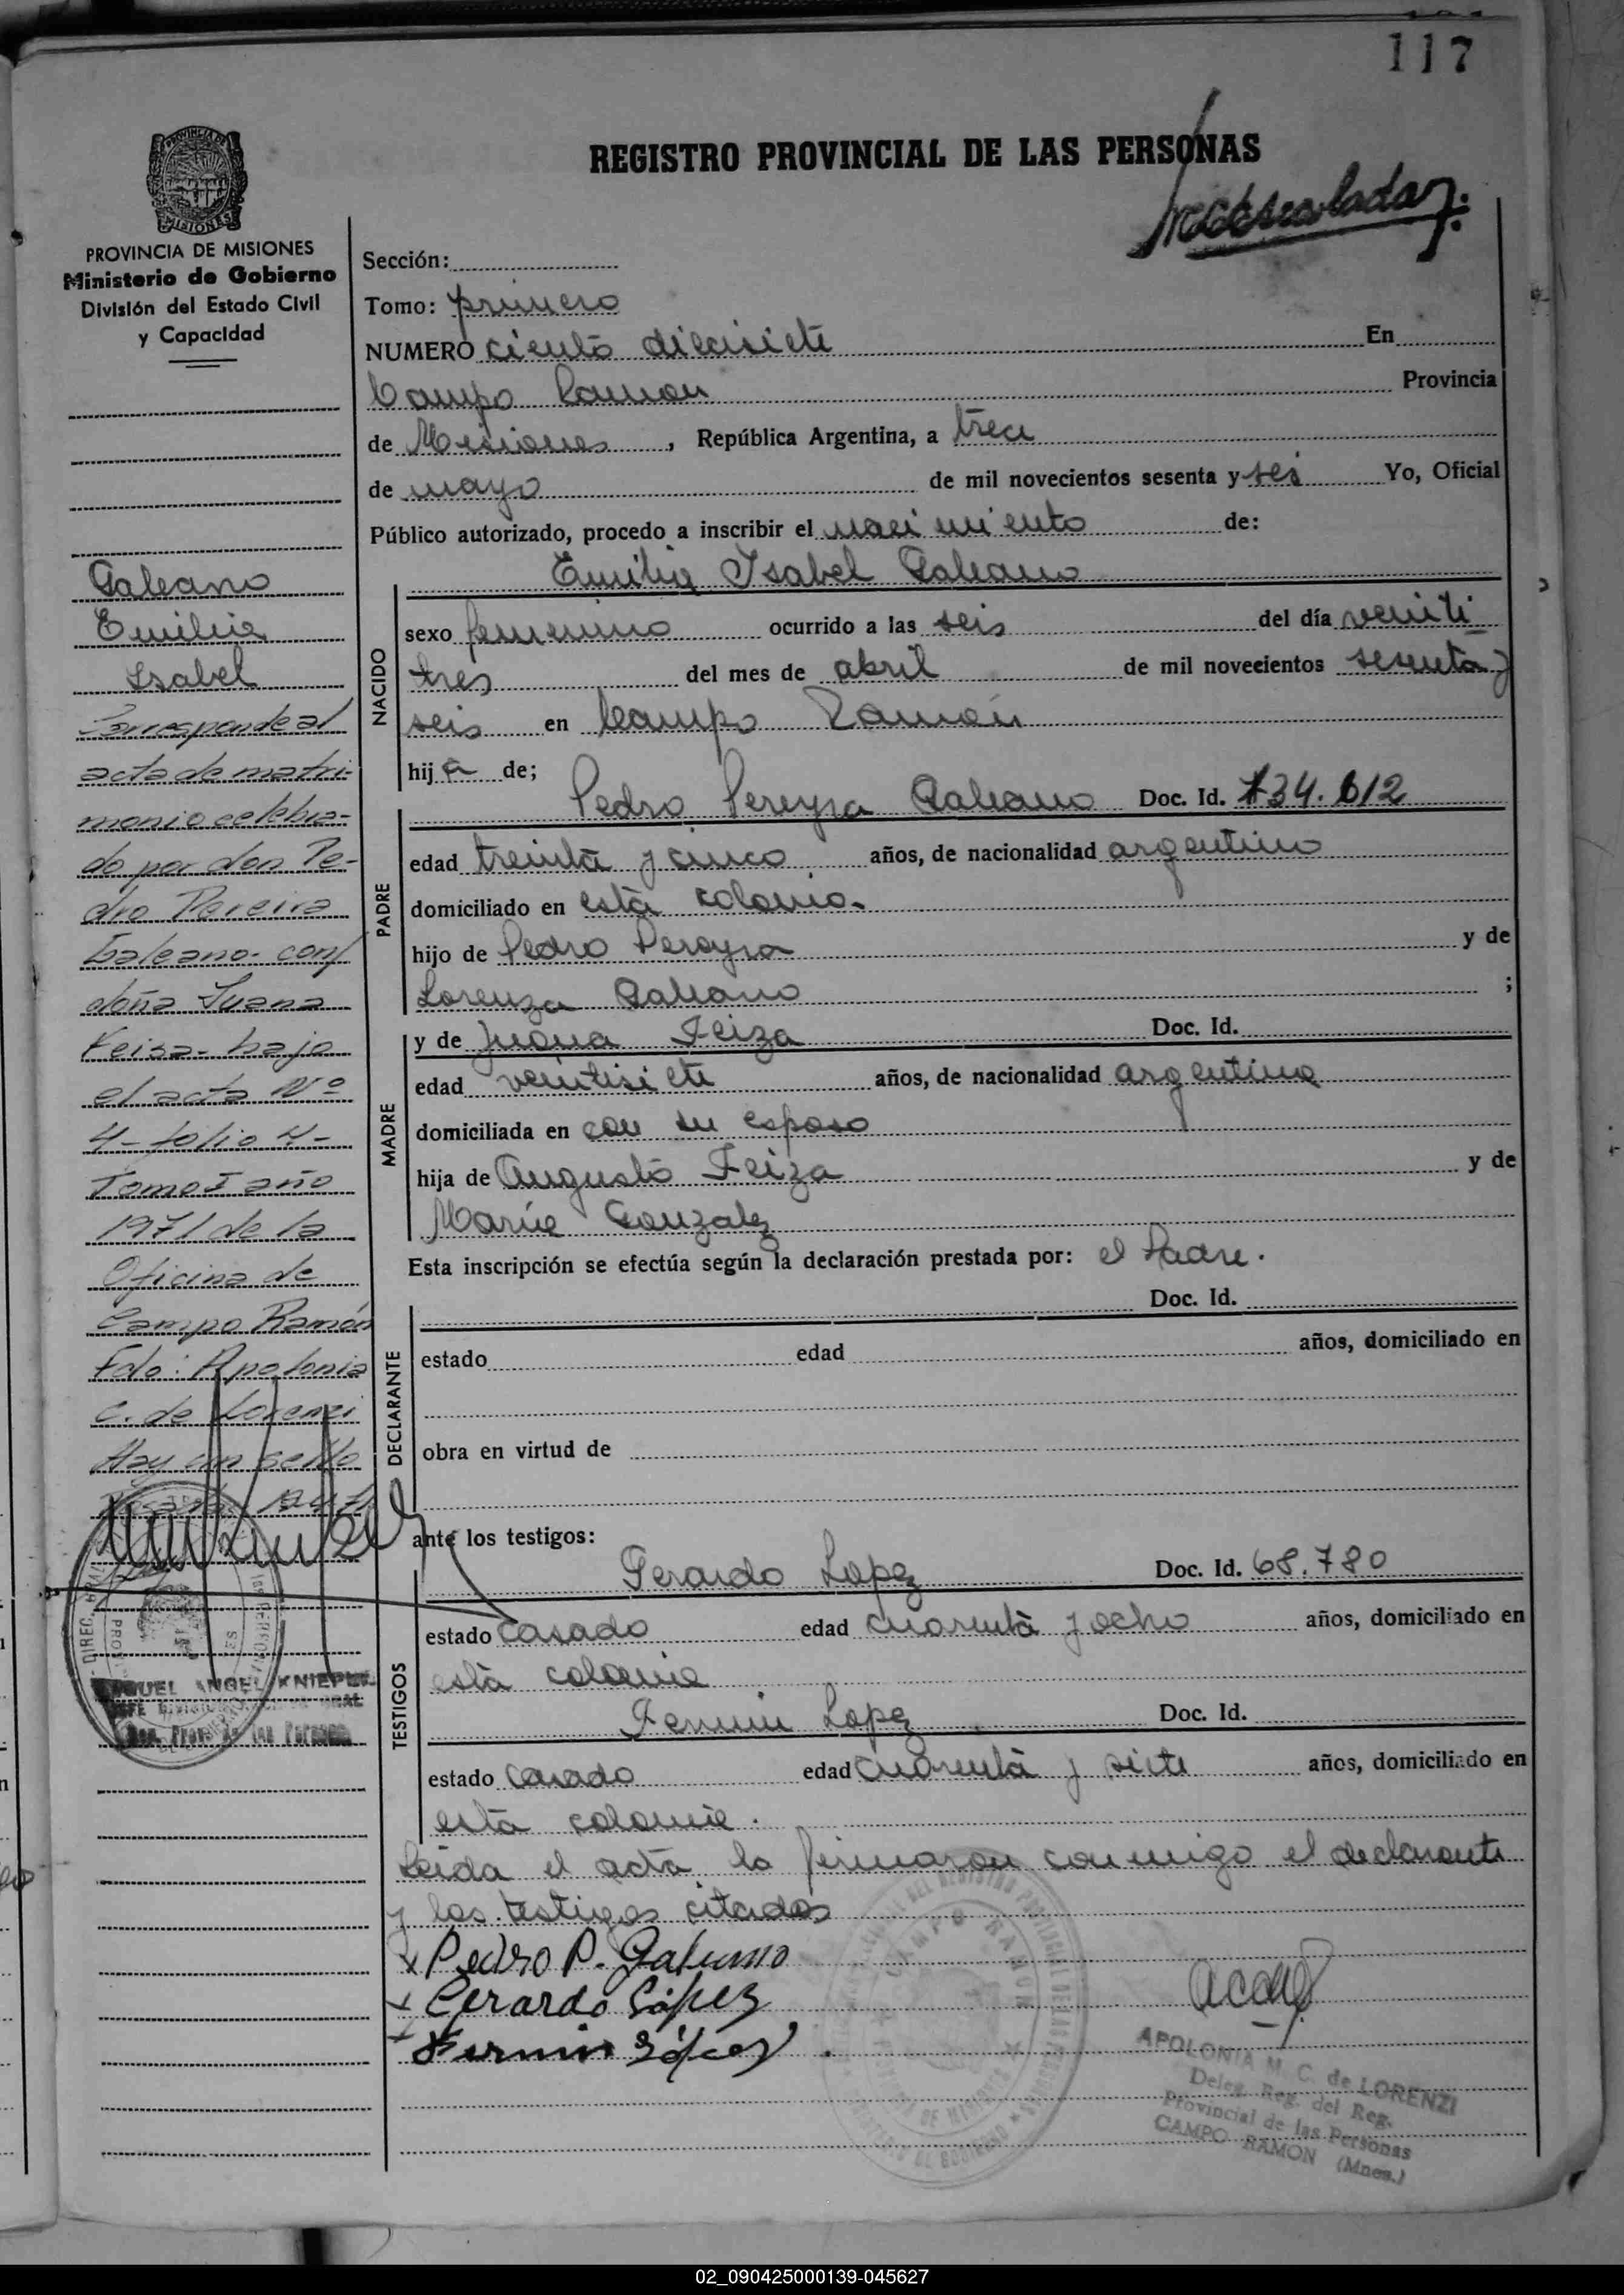 117
REGISTRO PROVINCIAL DE LAS PERSONAS
PROVINCIA DE MISIONES
Ministerio de Gobierno
División del Estado Civil
y Capacidad
Sección:
Tomo: primero
NUMERO ciento diecisiete En
Campo Ramon Provincia
de Misiones, República Argentina, a trece
de mayo de mil novecientos sesenta y seis Yo, Oficial
Público autorizado, procedo a inscribir el nacimiento de:
Emilia Isabel Galeano
NACIDO
sexo femenino ocurrido a las seis del día veniti
tres del mes de abril de mil novecientos sesenta y
seis en Campo Ramón
hija de;
PADRE
Pedro Pereyra Galeano Doc. Id.
edad treinta y cinco años, de nacionalidad argentino
domiciliado en esta colonia.
hijo de Pedro Pereyra y de
Lorenza Galeano ;
MADRE
y de Juana Feiza Doc. Id.
edad venitisiete años, de nacionalidad argentina
domiciliada en con su esposo
hija de Augusto Feiza y de
Maria Gonzalez
Esta inscripción se efectúa según la declaración prestada por: el Padre.
DECLARANTE
Doc. Id.
estado edad años, domiciliado en
obra en virtud de
ante los testigos:
TESTIGOS
Gerardo Lopez Doc. Id. 68.780
estado casado edad cuarenta y ocho años, domiciliado en
esta colonia
Fermin Lopez Doc. Id.
estado casado edad cuarenta y siete años, domiciliado en
esta colonia.
Leida el acta la firmaron conmigo el declarante
y los testigos citados
Pedro P. Galeano
Gerardo López
Fermin López
APOLONIA M. C. de LORENZI
Deleg. Reg. del Reg.
Provincial de las Personas
CAMPO RAMON (Mnes.)
Galeano
Emilia
Isabel
Corresponde al
acta de matri-
monio celebra-
do por don Pe-
dro Pereira
Galeano- con
doña Juana
Feisa- bajo
el acta Nº
4- folio 4-
Tomo I año
1971 de la
Oficina de
Campo Ramón
Fdo: Apolonia
C. de Lorenzi
Hay un sello
02_090425000139-045627